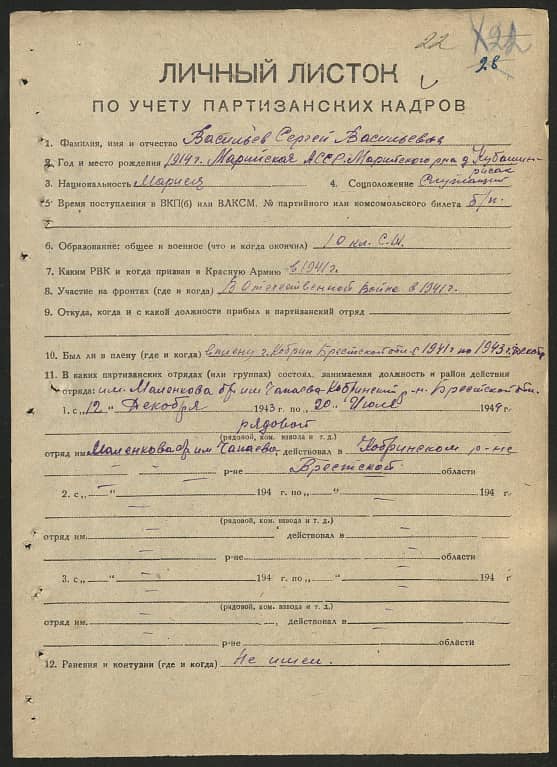 22 122
28
ЛИЧНЫЙ ЛИСТОК
ПО УЧЕТУ ПАРТИЗАНСКИХ КАДРОВ
1. Фамилия, имя и отчество Васильев Сергей Васильевич
2. Год и место рождения 1914 г. Марийская АССР. Марийского р-на д. Кубашин-
рисак
3. Национальность Мариец 4. Соцположение Служащий
5. Время поступления в ВКП(б) или ВЛКСМ. № партийного или комсомольского билета б/п.
6. Образование: общее и военное (что и когда окончил) 10 кл. С.Ш.
7. Каким РВК и когда призван в Красную Армию в 1941 г.
8. Участие на фронтах (где и когда) В Отечественной войне в 1941 г.
9. Откуда, когда и с какой должности прибыл в партизанский отряд
10. Был ли в плену (где и когда) в плену г. Кобрин Брестской обл. с 1941 г по 1943 г. декабр
11. В каких партизанских отрядах (или группах) состоял, занимаемая должность и район действия
отряда: им. Маленкова бр. им. Чапаева Кобринский р-н. Брестской обл.
1. с „12" Декабря 1943 г. по „20" Июля 1944 г.
рядовой
(рядовой, ком. взвода и т. д.)
отряд им. Маленкова бр. им. Чапаева, действовал в Кобринском р-не
— — р-не Брестской области
2. с „—" — 194 г. по „—" — 194 г.
—
(рядовой, ком. взвода и т. д.)
отряд им. — действовал в —
— р-не — области
3. с „—" — 194 г. по „—" — 194 г
—
(рядовой, ком. взвода и т. д.)
отряд им. —, действовал в —
— р-не — области
12. Ранения и контузии (где и когда) Не имел.